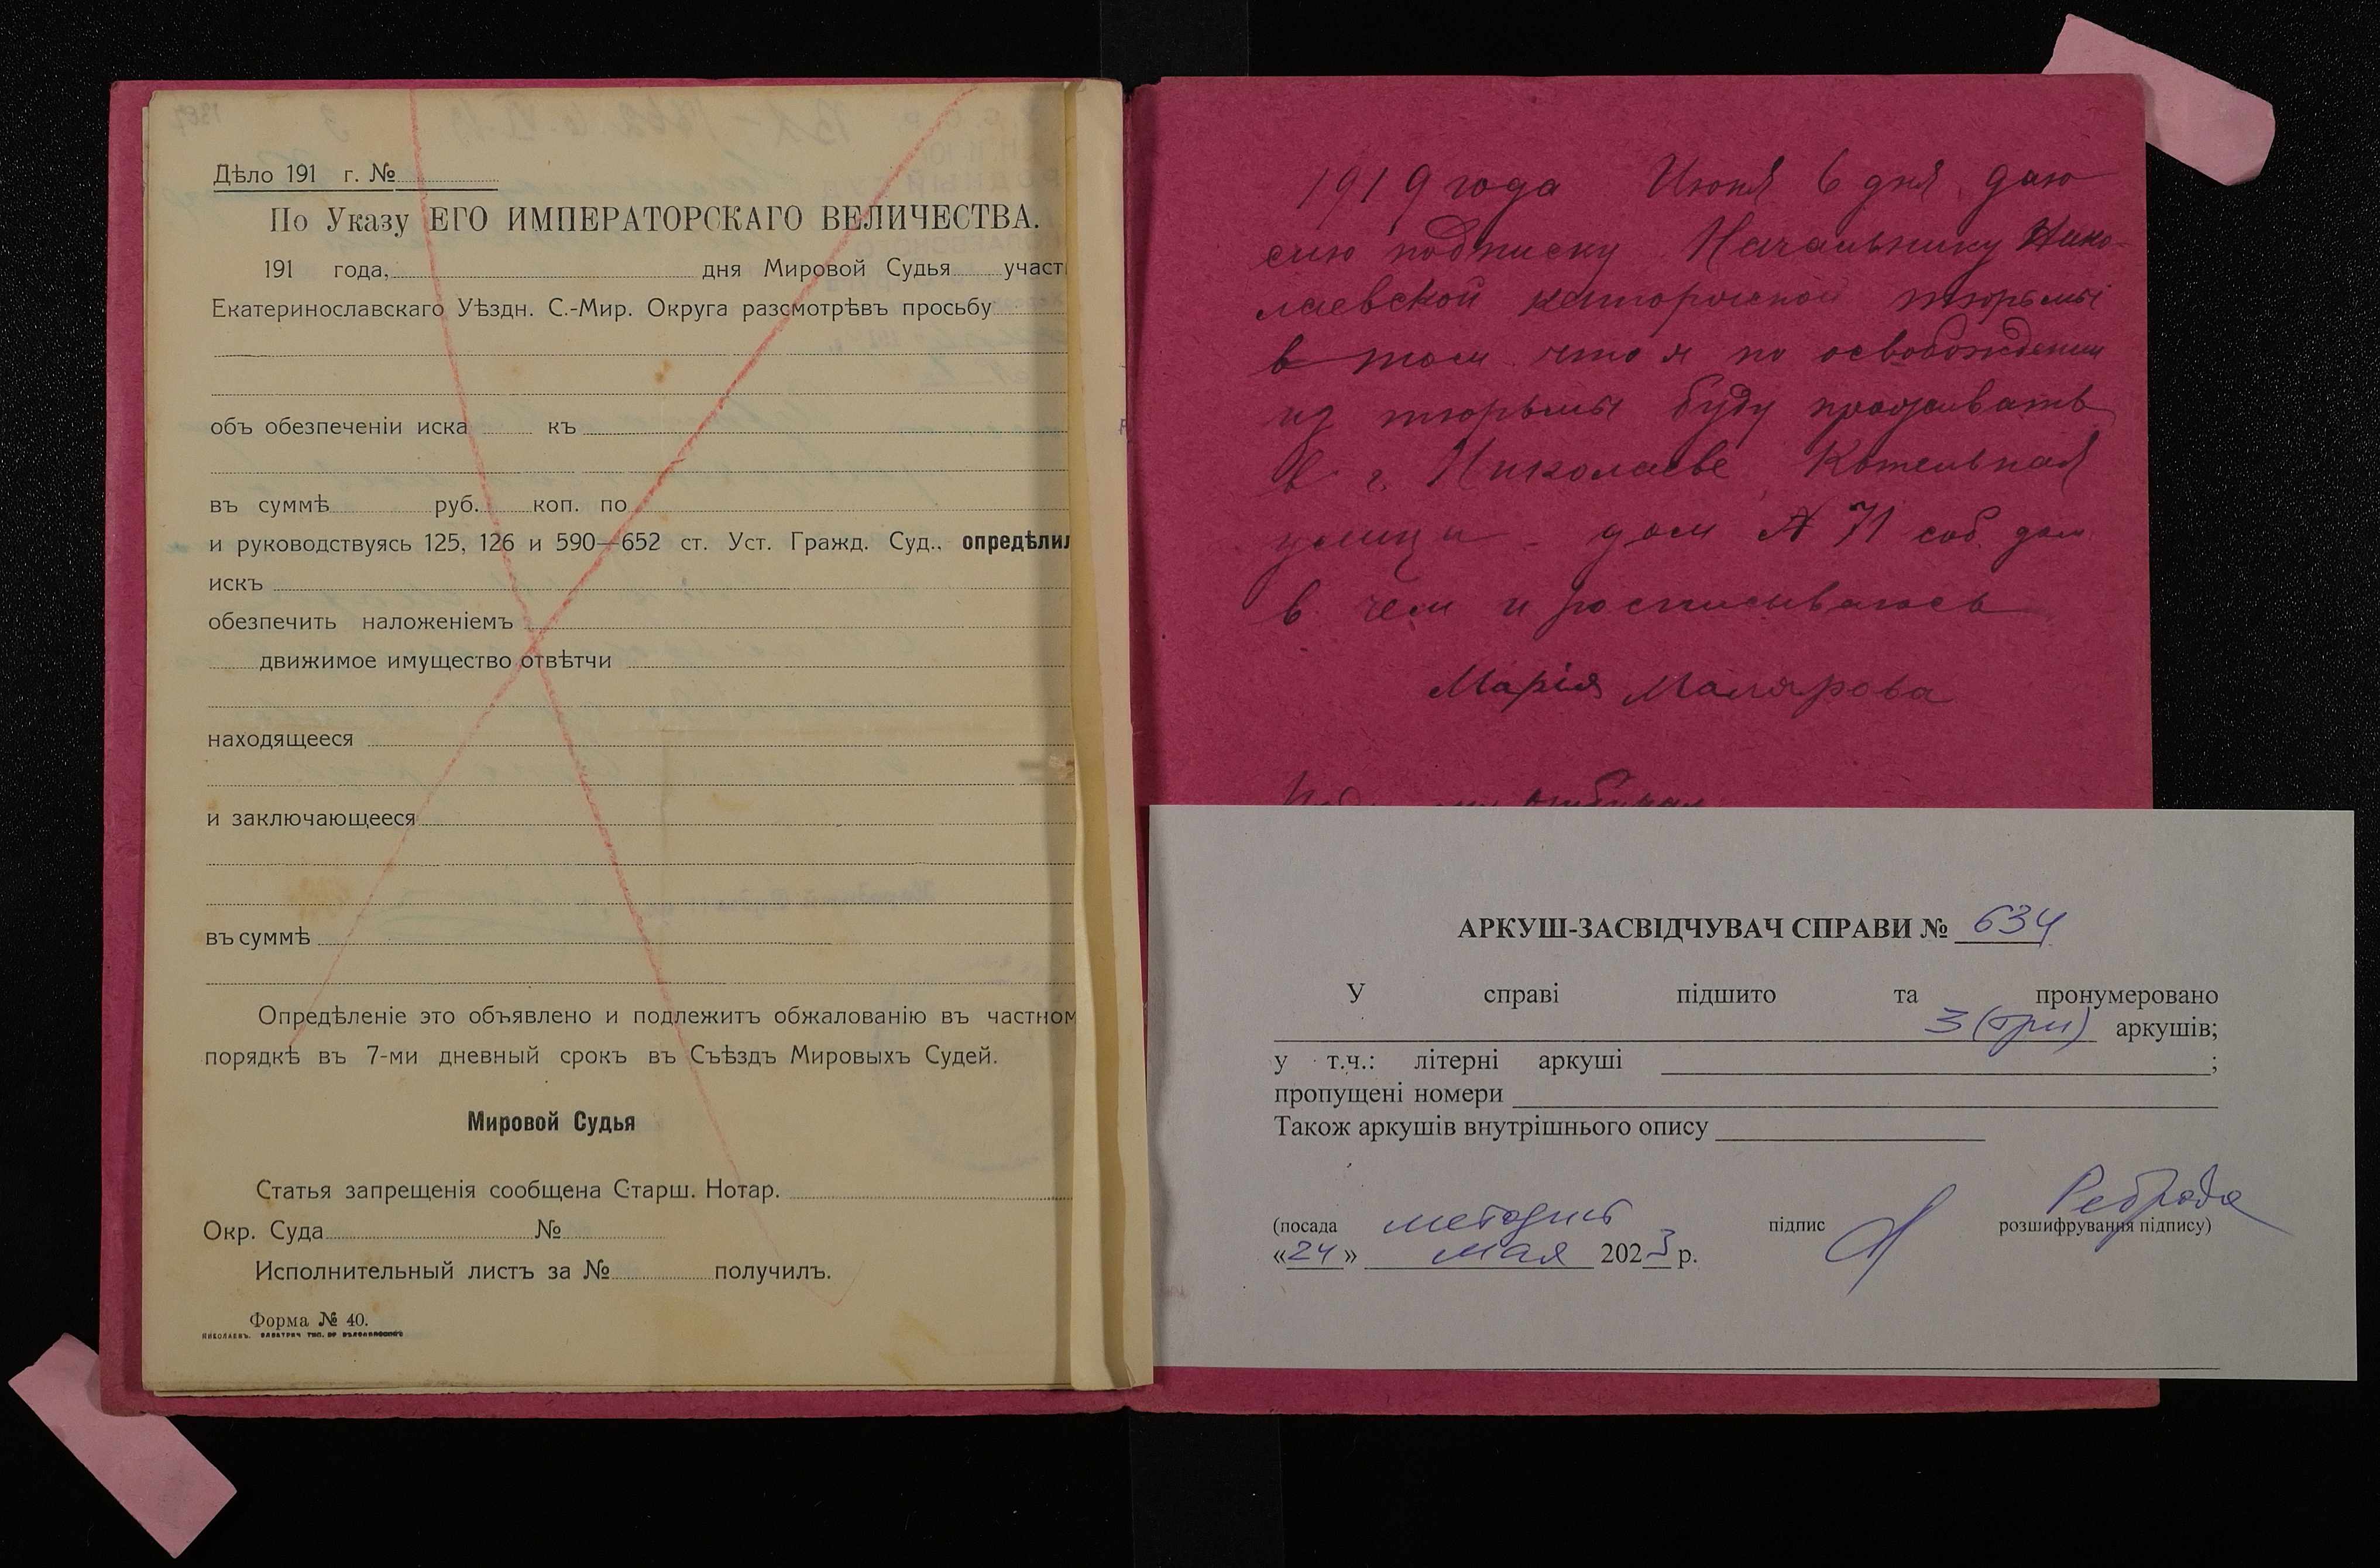 Дѣло 191 г. №
По Указу ЕГО ИМПЕРАТОРСКАГО ВЕЛИЧЕСТВА.
191 года, дня Мировой Судья участ
Екатеринославскаго Уѣздн. С.-Мир. Округа разсмотрѣвъ просьбу
объ обезпеченіи иска къ
въ суммѣ руб. коп. по
и руководствуясь 125, 126 и 590—652 ст. Уст. Гражд. Суд., опредѣлил
искъ
обезпечить наложеніемъ
движимое имущество отвѣтчи
находящееся
и заключающееся
въ суммѣ
Опредѣленіе это объявлено и подлежитъ обжалованію въ частном
порядкѣ въ 7-ми дневный срокъ въ Съѣздъ Мировыхъ Судей.
Мировой Судья
Статья запрещенія сообщена Старш. Нотар.
Окр. Суда №
Исполнительный листъ за № получилъ.
Форма № 40.
НИКОЛАЕВЪ.
1919 года Июня 6 дня даю
сию подписку Начальнику Нико-
лаевской каторжной тюрьмы
в том что я по освобождении
из тюрьмы буду проживать
в г. Николаеве Котельная
улица дом № 71 соб. дом
в чем и росписываюсь
Марія Малярова
АРКУШ-ЗАСВІДЧУВАЧ СПРАВИ № 634
У справі підшито та пронумеровано
3 (три) аркушів;
у т.ч.: літерні аркуші ;
пропущені номери
Також аркушів внутрішнього опису
(посада методист підпис розшифрування підпису)
«24» мая 2023 р.